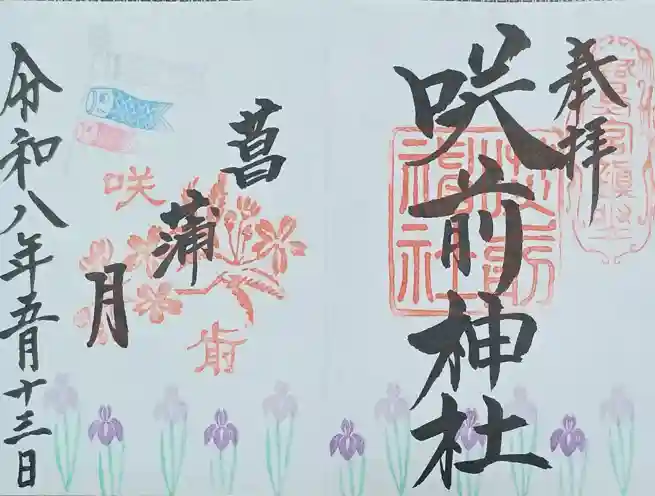 奉拝
咲前神社
咲前神社
菖蒲月
咲
前
令和八年五月十三日